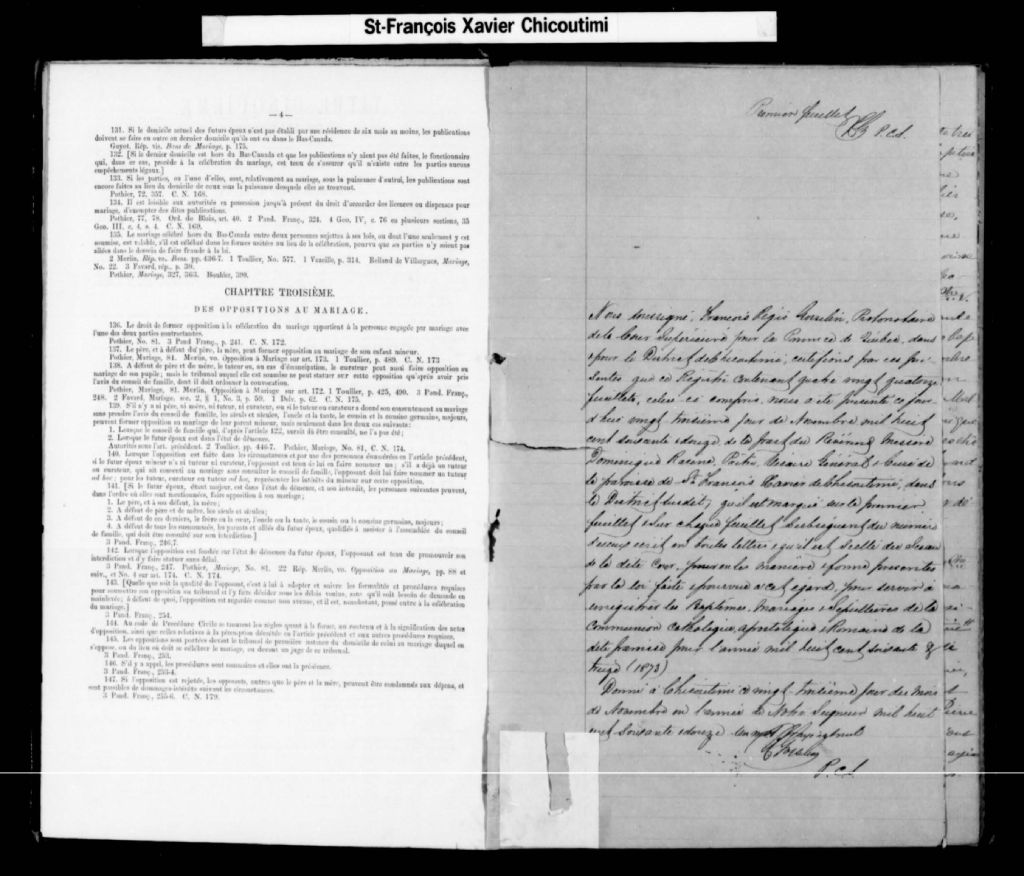 St-François Xavier Chicoutimi
— 4 —
131. Si le domicile actuel des futurs époux n'est pas établi par une résidence de six mois au moins, les publications
doivent se faire en outre au dernier domicile qu'ils ont eu dans le Bas-Canada.
Guyot, Rép. vis. Bans de Mariage, p. 175.
132. [Si le dernier domicile est hors du Bas-Canada et que les publications n'y aient pas été faites, le fonctionnaire
qui, dans ce cas, procède à la célébration du mariage, est tenu de s'assurer qu'il n'existe entre les parties aucuns
empêchements légaux.]
133. Si les parties, ou l'une d'elles, sont, relativement au mariage, sous la puissance d'autrui, les publications sont
encore faites au lieu du domicile de ceux sous la puissance desquels elles se trouvent.
Pothier, 72, 357. C. N. 168.
134. Il est loisible aux autorités en possession jusqu'à présent du droit d'accorder des licences ou dispenses pour
mariage, d'exempter des dites publications.
Pothier, 77, 78. Ord. de Blois, art. 40. 2 Pand. Franç., 324. 4 Geo. IV, c. 76 en plusieurs sections, 35
Geo. III, c. 4, s. 4. C. N. 169.
135. Le mariage célébré hors du Bas-Canada entre deux personnes sujettes à ses lois, ou dont l'une seulement y est
soumise, est valable, s'il est célébré dans les formes usitées au lieu de la célébration, pourvu que ses parties n'y soient pas
allées dans le dessein de faire fraude à la loi.
2 Merlin, Rép. vo. Bans, pp. 436-7. 1 Toullier, No. 577. 1 Vazeille, p. 314. Rolland de Villargues, Mariage,
No. 22. 3 Favard, rép., p. 39.
Pothier, Mariage, 327, 363. Bouhier, 390.
CHAPITRE TROISIÈME.
DES OPPOSITIONS AU MARIAGE.
136. Le droit de former opposition à la célébration du mariage appartient à la personne engagée par mariage avec
l'une des deux parties contractantes.
Pothier, No. 81. 3 Pand Franç., p. 241. C. N. 172.
137. Le père, et à défaut du père, la mère, peut former opposition au mariage de son enfant mineur.
Pothier, Mariage, 81. Merlin, vo. Opposition à Mariage sur art. 173. 1 Toullier, p. 489. C. N. 173
138. A défaut de père et de mère, le tuteur ou, au cas d'émancipation, le curateur peut aussi faire opposition au
mariage de son pupile; mais le tribunal auquel elle est soumise ne peut statuer sur cette opposition qu'après avoir pris
l'avis du conseil de famille, dont il doit ordonner la convocation.
Pothier, Mariage, 81. Merlin, Opposition à Mariage sur art. 172. 1 Toullier, p. 425, 490. 3 Pand. Franç.,
248. 2 Favard, Mariage, sec. 2, § 1, No. 3, p. 59. 1 Delv. p. 62. C. N. 175.
139. S'il n'y a ni père, ni mère, ni tuteur, ni curateur, ou si le tuteur ou curateur a donné son consentement au mariage
sans prendre l'avis du conseil de famille, les aïeuls et aïeules, l'oncle et la tante, le cousin et la cousine germains, majeurs,
peuvent former opposition au mariage de leur parent mineur, mais seulement dans les deux cas suivants:
1. Lorsque le conseil de famille qui, d'après l'article 122, aurait dû être consulté, ne l'a pas été;
2. Lorsque le futur époux est dans l'état de démence.
Autorités sous l'art. précédent. 2 Toullier, pp. 446-7. Pothier, Mariage, No. 81, C. N. 174.
140. Lorsque l'opposition est faite dans les circonstances et par une des personnes énumérées en l'article précédent,
si le futur époux mineur n'a ni tuteur ni curateur, l'opposant est tenu de lui en faire nommer un; s'il a déjà un tuteur
ou curateur, qui ait consenti au mariage sans consulter le conseil de famille, l'opposant doit lui faire nommer un tuteur
ad hoc; pour les tuteur, curateur ou tuteur ad hoc, représenter les intérêts du mineur sur cette opposition.
141. [Si le futur époux, étant majeur, est dans l'état de démence, et non interdit, les personnes suivantes peuvent,
dans l'ordre où elles sont mentionnées, faire opposition à son mariage;
1. Le père, et à son défaut, la mère;
2. A défaut de père et de mère, les aïeuls et aïeules;
3. A défaut de ces derniers, le frère ou la sœur, l'oncle ou la tante, le cousin ou la cousine germains, majeurs;
4. A défaut de tous les susnommés, les parents et alliés du futur époux, qualifiés à assister à l'assemblée du conseil
de famille, qui doit être consulté sur son interdiction.]
3 Pand. Franç., 246,7.
142. Lorsque l'opposition est fondée sur l'état de démence du futur époux, l'opposant est tenu de promouvoir son
interdiction et d'y faire statuer sans délai.
3 Pand. Franç., 247. Pothier, Mariage, No. 81. 22 Rép. Merlin, vo. Opposition au Mariage, pp. 88 et
suiv., et No. 4 sur art. 174. C. N. 174.
143. [Quelle que soit la qualité de l'opposant, c'est à lui à adopter et suivre les formalités et procédures requises
pour soumettre son opposition au tribunal et l'y faire décider sous les délais voulus, sans qu'il soit besoin de demande en
mainlevée; à défaut de quoi, l'opposition est regardée comme non avenue, et il est, nonobstant, passé outre à la célébration
du mariage.]
3 Pand. Franç., 254.
144. Au code de Procédure Civile se trouvent les règles quant à la forme, au contenu et à la signification des actes
d'opposition, ainsi que celles relatives à la péremption décrétée en l'article précédent et aux autres procédures requises.
145. Les oppositions sont portées devant le tribunal de première instance du domicile de celui au mariage duquel on
s'oppose, ou du lieu où doit se célébrer le mariage, ou devant un juge de ce tribunal.
3 Pand. Franç., 253.
146. S'il y a appel, les procédures sont sommaires et elles ont la préséance.
3 Pand. Franç., 253-4.
147. Si l'opposition est rejetée, les opposants, autres que le père et la mère, peuvent être condamnés aux dépens, et
sont passibles de dommages-intérêts suivant les circonstances.
3 Pand. Franç., 255-6. C. N. 179.
Premier feuillet
P.C.S.
Nous soussigné, François Régis Gosselin, Protonotaire
de la Cour Supérieure pour la Province de Québec, dans
& pour le District de Chicoutimi, certifions par ces pré-
sentes que ce Régistre contenant quatre vingt quatorze
feuillets, celui ci compris, nous a été présenté ce jour
d'hui vingt troisième jour de Novembre mil huit
cent soixante & douze de la part du Révérend Messire
Dominique Racine, Prêtre, Vicaire Général & Curé de
la paroisse de St François Xavier de Chicoutimi, dans
le District susdit, qu'il est marqué sur le premier
feuillet & sur chaque feuillet subséquent du numéro
d'iceux écrit en toutes lettres & qu'il est scellé du Sceau
de la dite Cour, pour en la manière & forme prescrites
par la loi faite & pourvue à cet égard, pour servir à
enregistrer les Baptêmes, Mariages & Sépultures de la
Communion Catholique, apostolique & Romaine de la
dite paroisse pour l'année mil huit cent soixante &
treize (1873)
Donné à Chicoutimi ce vingt-troisième jour du mois
de Novembre en l'année de Notre Seigneur mil huit
cent soixante & douze
Gosselin
P.C.S.